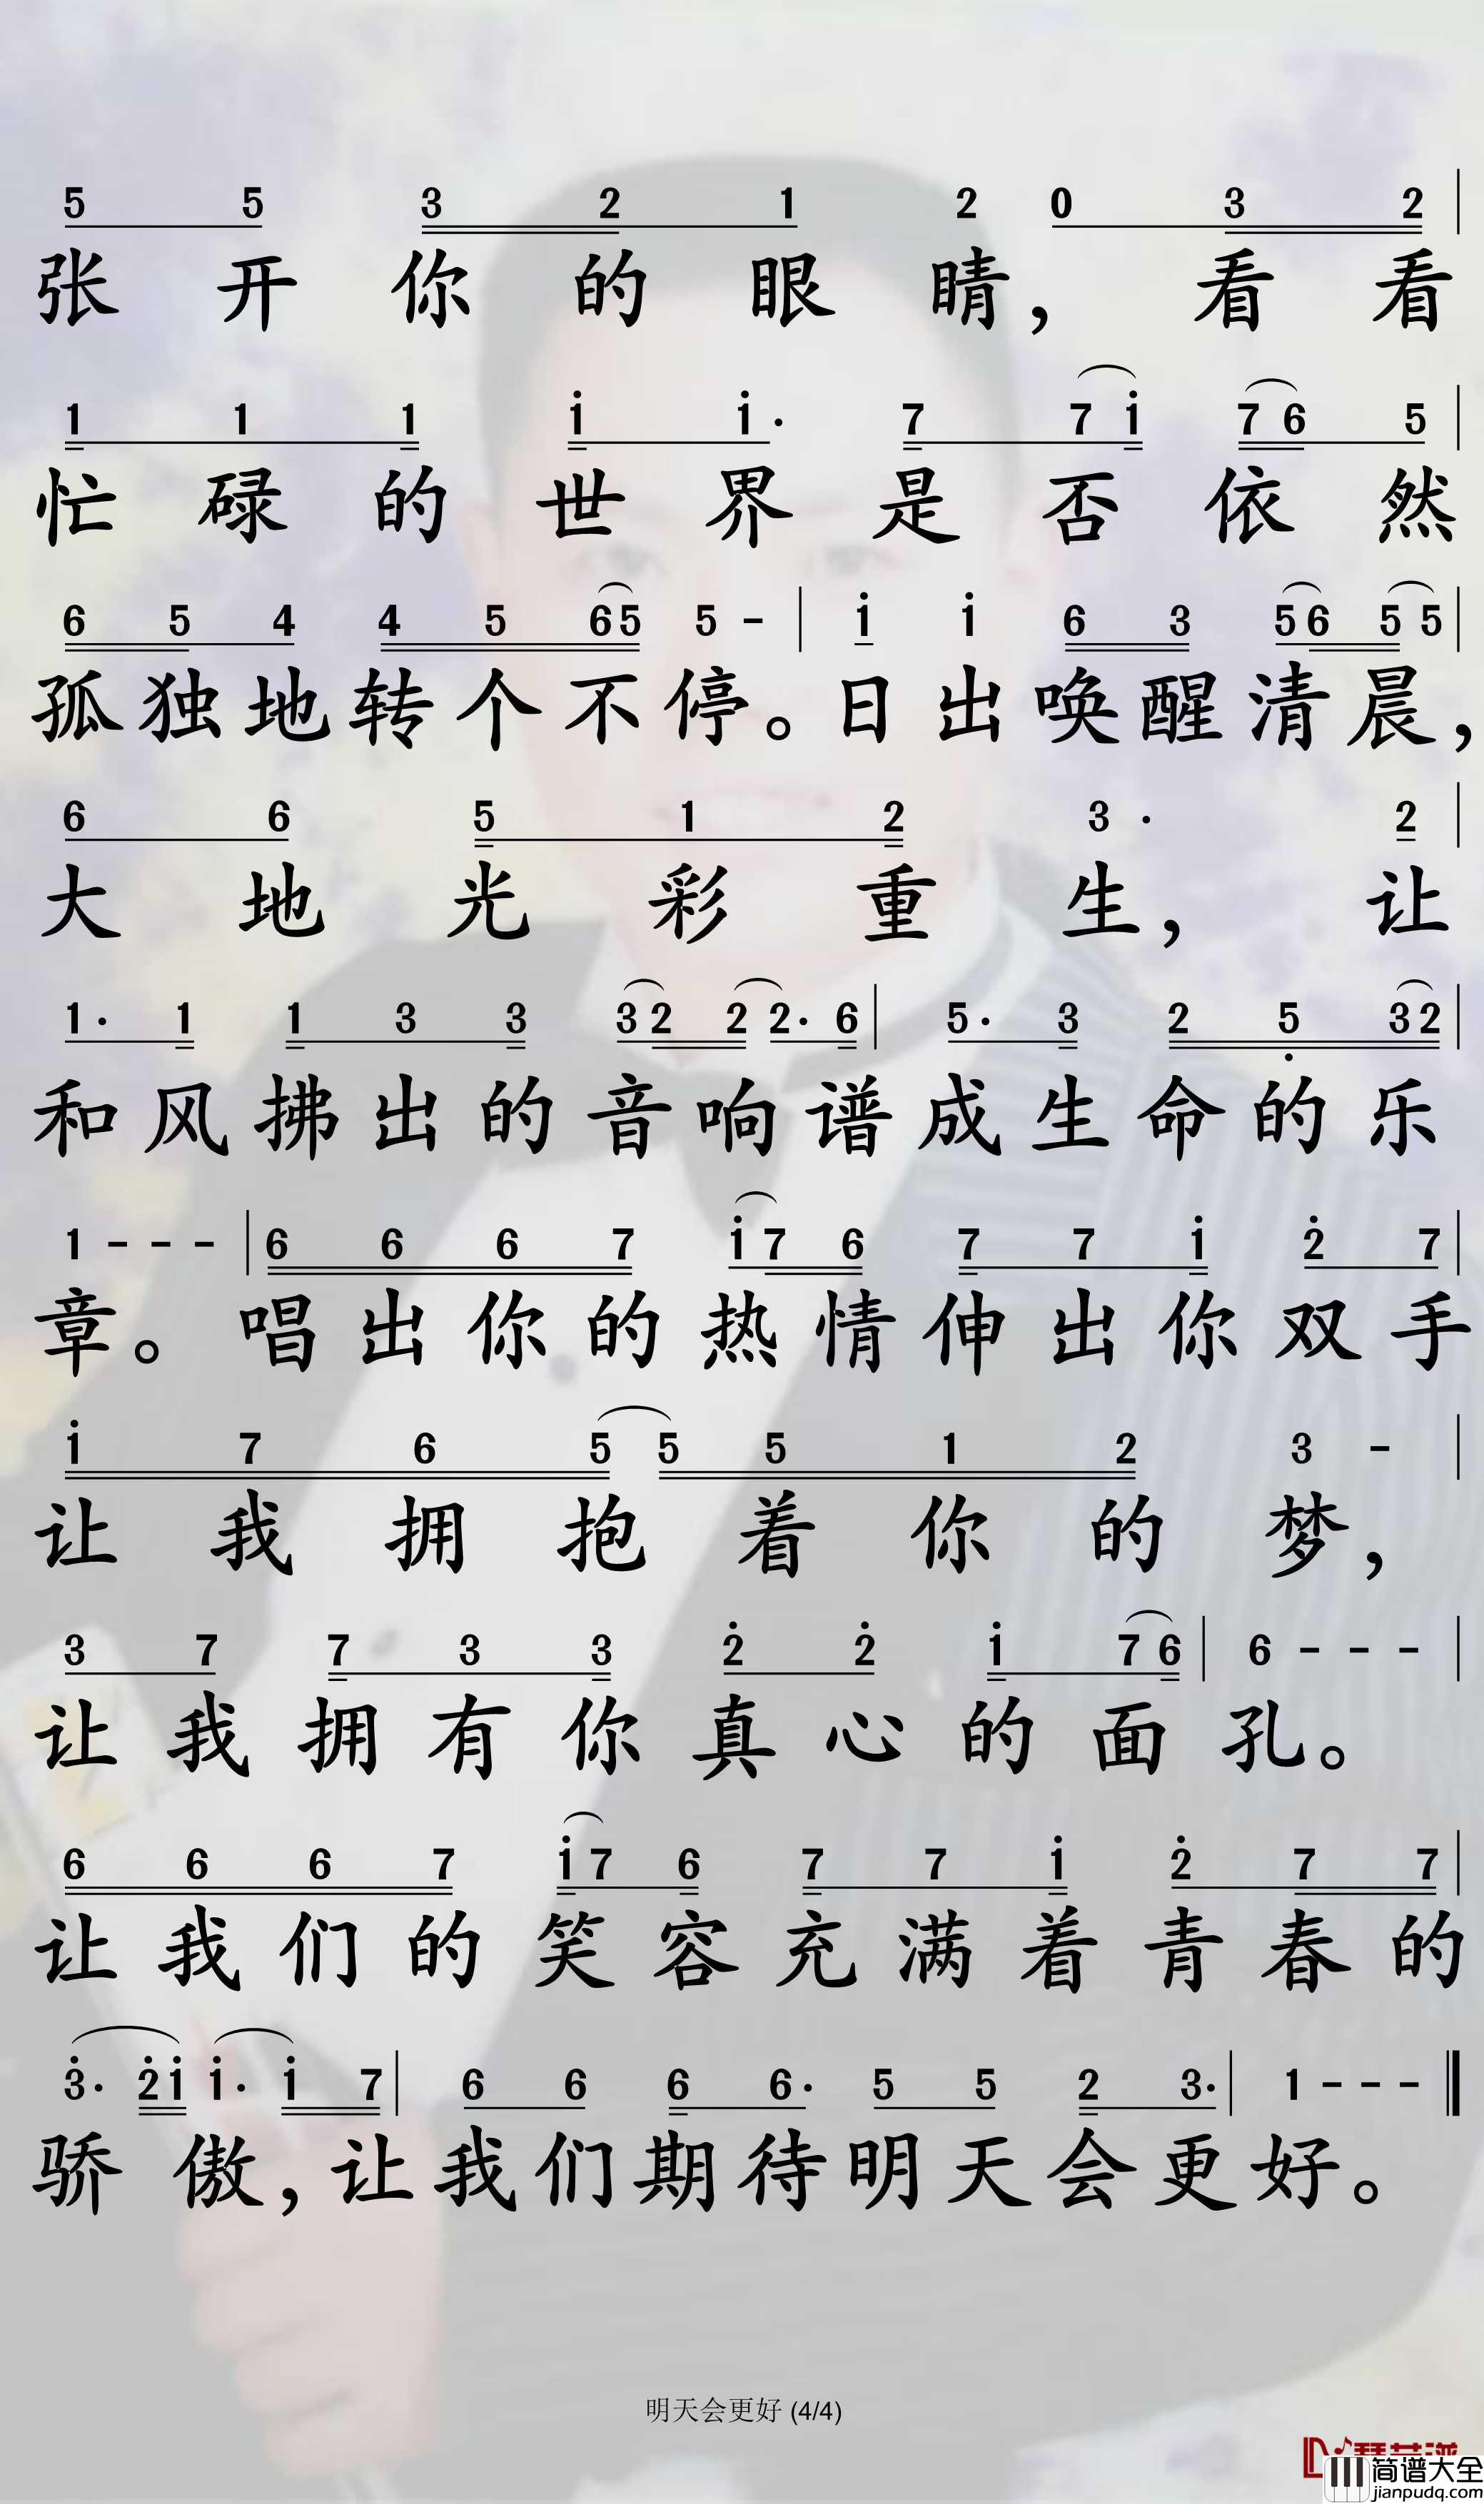 5 5 3 2 1 2 0 3 2 |
张开你的眼睛，看看
1 1 1 i i· 7 7 i 7 6 5 |
忙碌的世界是否依然
6 5 4 4 5 6 5 5 - | i i 6 3 5 6 5 5 |
孤独地转个不停。日出唤醒清晨，
6 6 5 1 2 3· 2 |
大地光彩重生，让
1· 1 1 3 3 3 2 2 2· 6 | 5· 3 2 5 3 2 |
和风拂出的音响谱成生命的乐
1 - - - | 6 6 6 7 i 7 6 7 7 i 2 7 |
章。唱出你的热情伸出你双手
i 7 6 5 5 5 1 2 3 - |
让我拥抱着你的梦，
3 7 7 3 3 2 2 i 7 6 | 6 - - - |
让我拥有你真心的面孔。
6 6 6 7 i 7 6 7 7 i 2 7 7 |
让我们的笑容充满着青春的
3· 2 i i· i 7 | 6 6 6 6· 5 5 2 3· | 1 - - - ‖
骄傲，让我们期待明天会更好。
明天会更好 (4/4)
简谱大全
jianpudq.com